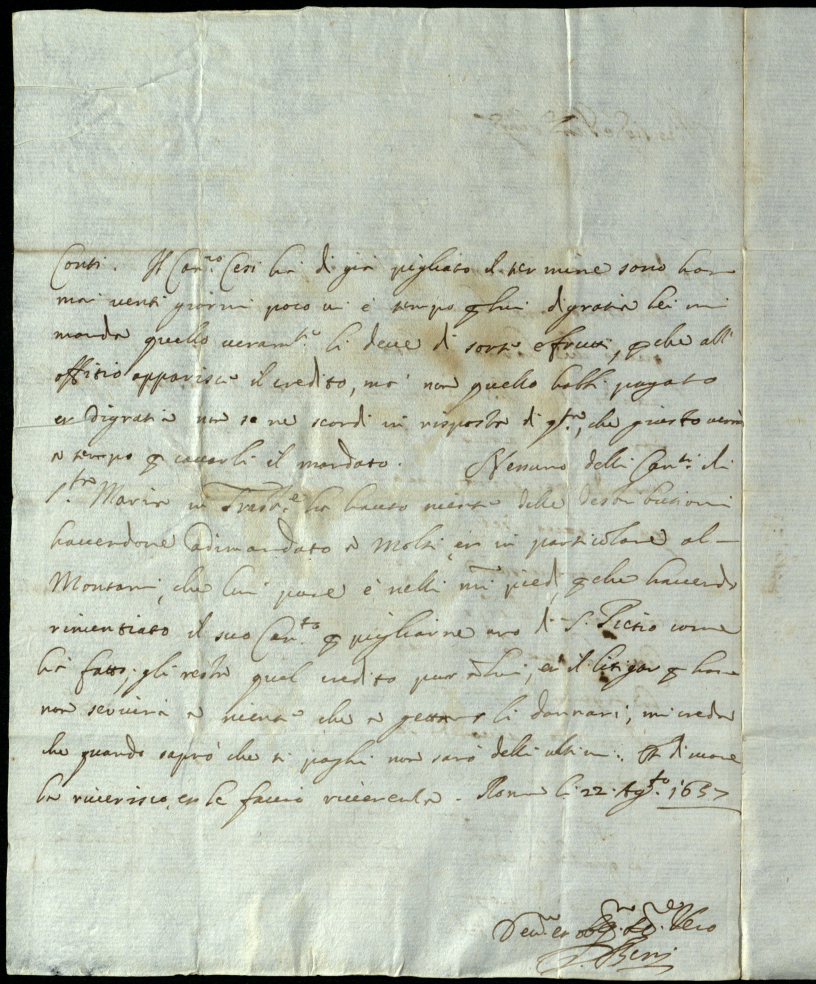 Conti. Il Can.co Cesi hà di già pigliato il termine sono hor=
mai venti giorni poco vi è tempo p lui di gratia lei mi
manda quello veram.te li deve di sorte e frutti, p che all'
offitio apparisce il credito, mà non quello habbi pagato
et di gratia non se ne scordi in risposta di q.ta, che questo verrà
a tempo p cavarli il mandato. Nessuno delli Can.ci di
S.ta Maria in Trast.e ha havuto niente delle destributioni
havendone adimandato a molti, et in particolare al
Montani, che lui pure è nelli mi piedi, p che havendo
rinuntiato il suo Can.to p pigliarne uno di S. Pietro come
hà fatto, gli resta quel credito pur a lui, et il litigar p hora
non servirà a niente che a gettare li dannari, mi creda
che quando saprò che si paghi non sarò delli ultimi. Et di cuore
la riverisco, et le faccio riverenza. Roma li 22 Ag.to 1657
Dev.mo et obl.mo Ser.re Vero
Beni